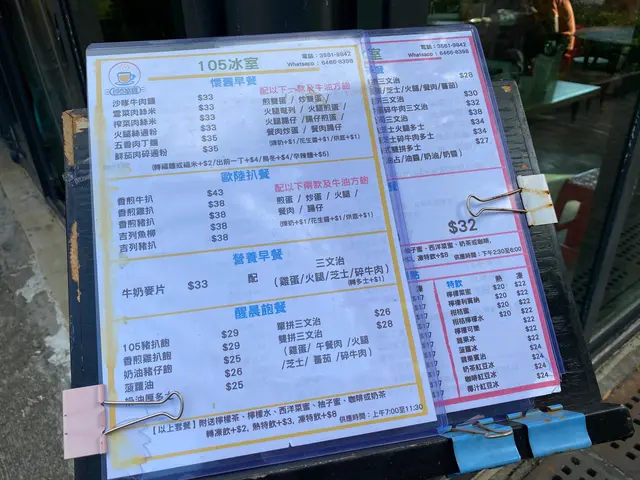 105冰室
電話：3581-9842
Whatsapp：6466-8398
懷舊早餐
沙嗲牛肉麵 $33
雪菜肉絲米 $33
榨菜肉絲米 $33
火腿絲通粉 $33
五香肉丁麵 $35
鮮茄肉碎通粉 $35
配以下一款及牛油方飽
煎雙蛋 / 炒雙蛋 /
火腿煎蛋 /
火腿腸仔 / 腸仔煎蛋 /
餐肉炒蛋 / 餐肉腸仔
(煉奶+$1/花生醬+$1/烘底+$1)
(轉福麵或福米+$2/出前一丁+$4/烏冬+$4/辛辣麵+$5)
歐陸扒餐
香煎牛扒 $43
香煎雞扒 $38
香煎豬扒 $38
吉列魚柳 $38
吉列豬扒 $38
配以下兩款及牛油方飽
煎蛋 / 炒蛋 / 火腿
餐肉 / 腸仔
(煉奶+$1/花生醬+$1/烘底+$1)
營養早餐
牛奶麥片 $33 配 三文治
(雞蛋/火腿/芝士/碎牛肉)
(轉多士+$1)
醒晨飽餐
105豬扒飽 $29
香煎雞扒飽 $29
奶油豬仔飽 $25
菠蘿油 $26
奶油厚多士 $25
單拼三文治 $26
雙拼三文治 $28
(雞蛋 / 午餐肉 / 火腿
/芝士/ 蕃茄 /碎牛肉)
【以上套餐】附送檸檬茶、檸檬水、西洋菜蜜、柚子蜜、咖啡或奶茶
轉凍飲+$2, 熱特飲+$3, 凍特飲+$8
供應時間：上午7:00至11:30
室
電話：3581-9842
Whatsapp：6466-8398
三文治 $28
芝士/火腿/餐肉/蕃茄)
$30
$32
$30
$34
$34
$27
餐
$32
柚子蜜、西洋菜蜜、奶茶或咖啡,
凍特飲+$8 供應時間：下午2:30至6:00
特飲 熱 凍
檸檬菜蜜 $20 $22
檸檬利賓納 $20 $22
柑桔蜜 $20 $22
柑桔檸檬水 $20 $22
檸檬可樂 $22
蘋果冰 $22
菠蘿冰 $22
蘋果賓治 $24
奶茶紅豆冰 $24
咖啡紅豆冰 $24
椰汁紅豆冰 $24